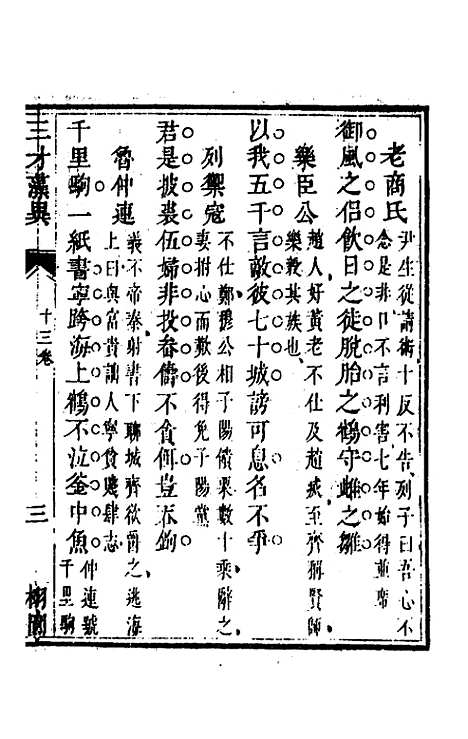 老商氏
尹生從請術十反不告列子曰吾心不
念是非口不言利害七年始得並席
御風之侶飲日之徒脫胎之鶴守雌之雛
樂臣公
趙人好黃老不仕及趙滅至齊稱賢師
樂毅其族也
以我五千言敵彼七十城謗可息名不爭
列禦寇
不仕鄭穆公相子陽饋粟數十乘辭之
妻拊心而歎後得免子陽黨
君是披裘伍婦非投畚儔不貪何豈吞鉤
魯仲連
義不帝秦射書下聊城齊欲爵之逃海
上曰與富貴詘人寧貧賤肆志
千里駒一紙書寧跨海上鶴不泣釜中魚
仲連號
千里駒
三才藻異
十三卷
三
栩園